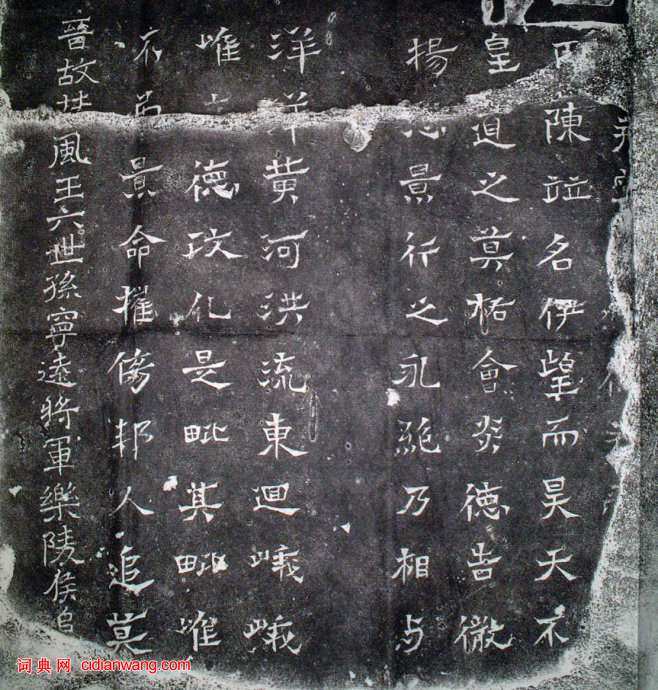 陳竝名伊望而昊天不
皇道之莫柘會炎德告微
揚景行之永絕乃相与
洋洋黄河洪流東迴峨峨
唯德政化是毗其毗唯
不景命摧傷邦人追莫
晉故扶風王六世孫寧遠將軍樂陵侯
词典网 cidianwang.com